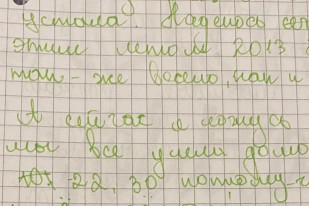 устала Надеюсь
этим летом 2013
так-же весело, как и
А сейчас я ложусь
мы все ушли домо
22,30 потому-ч